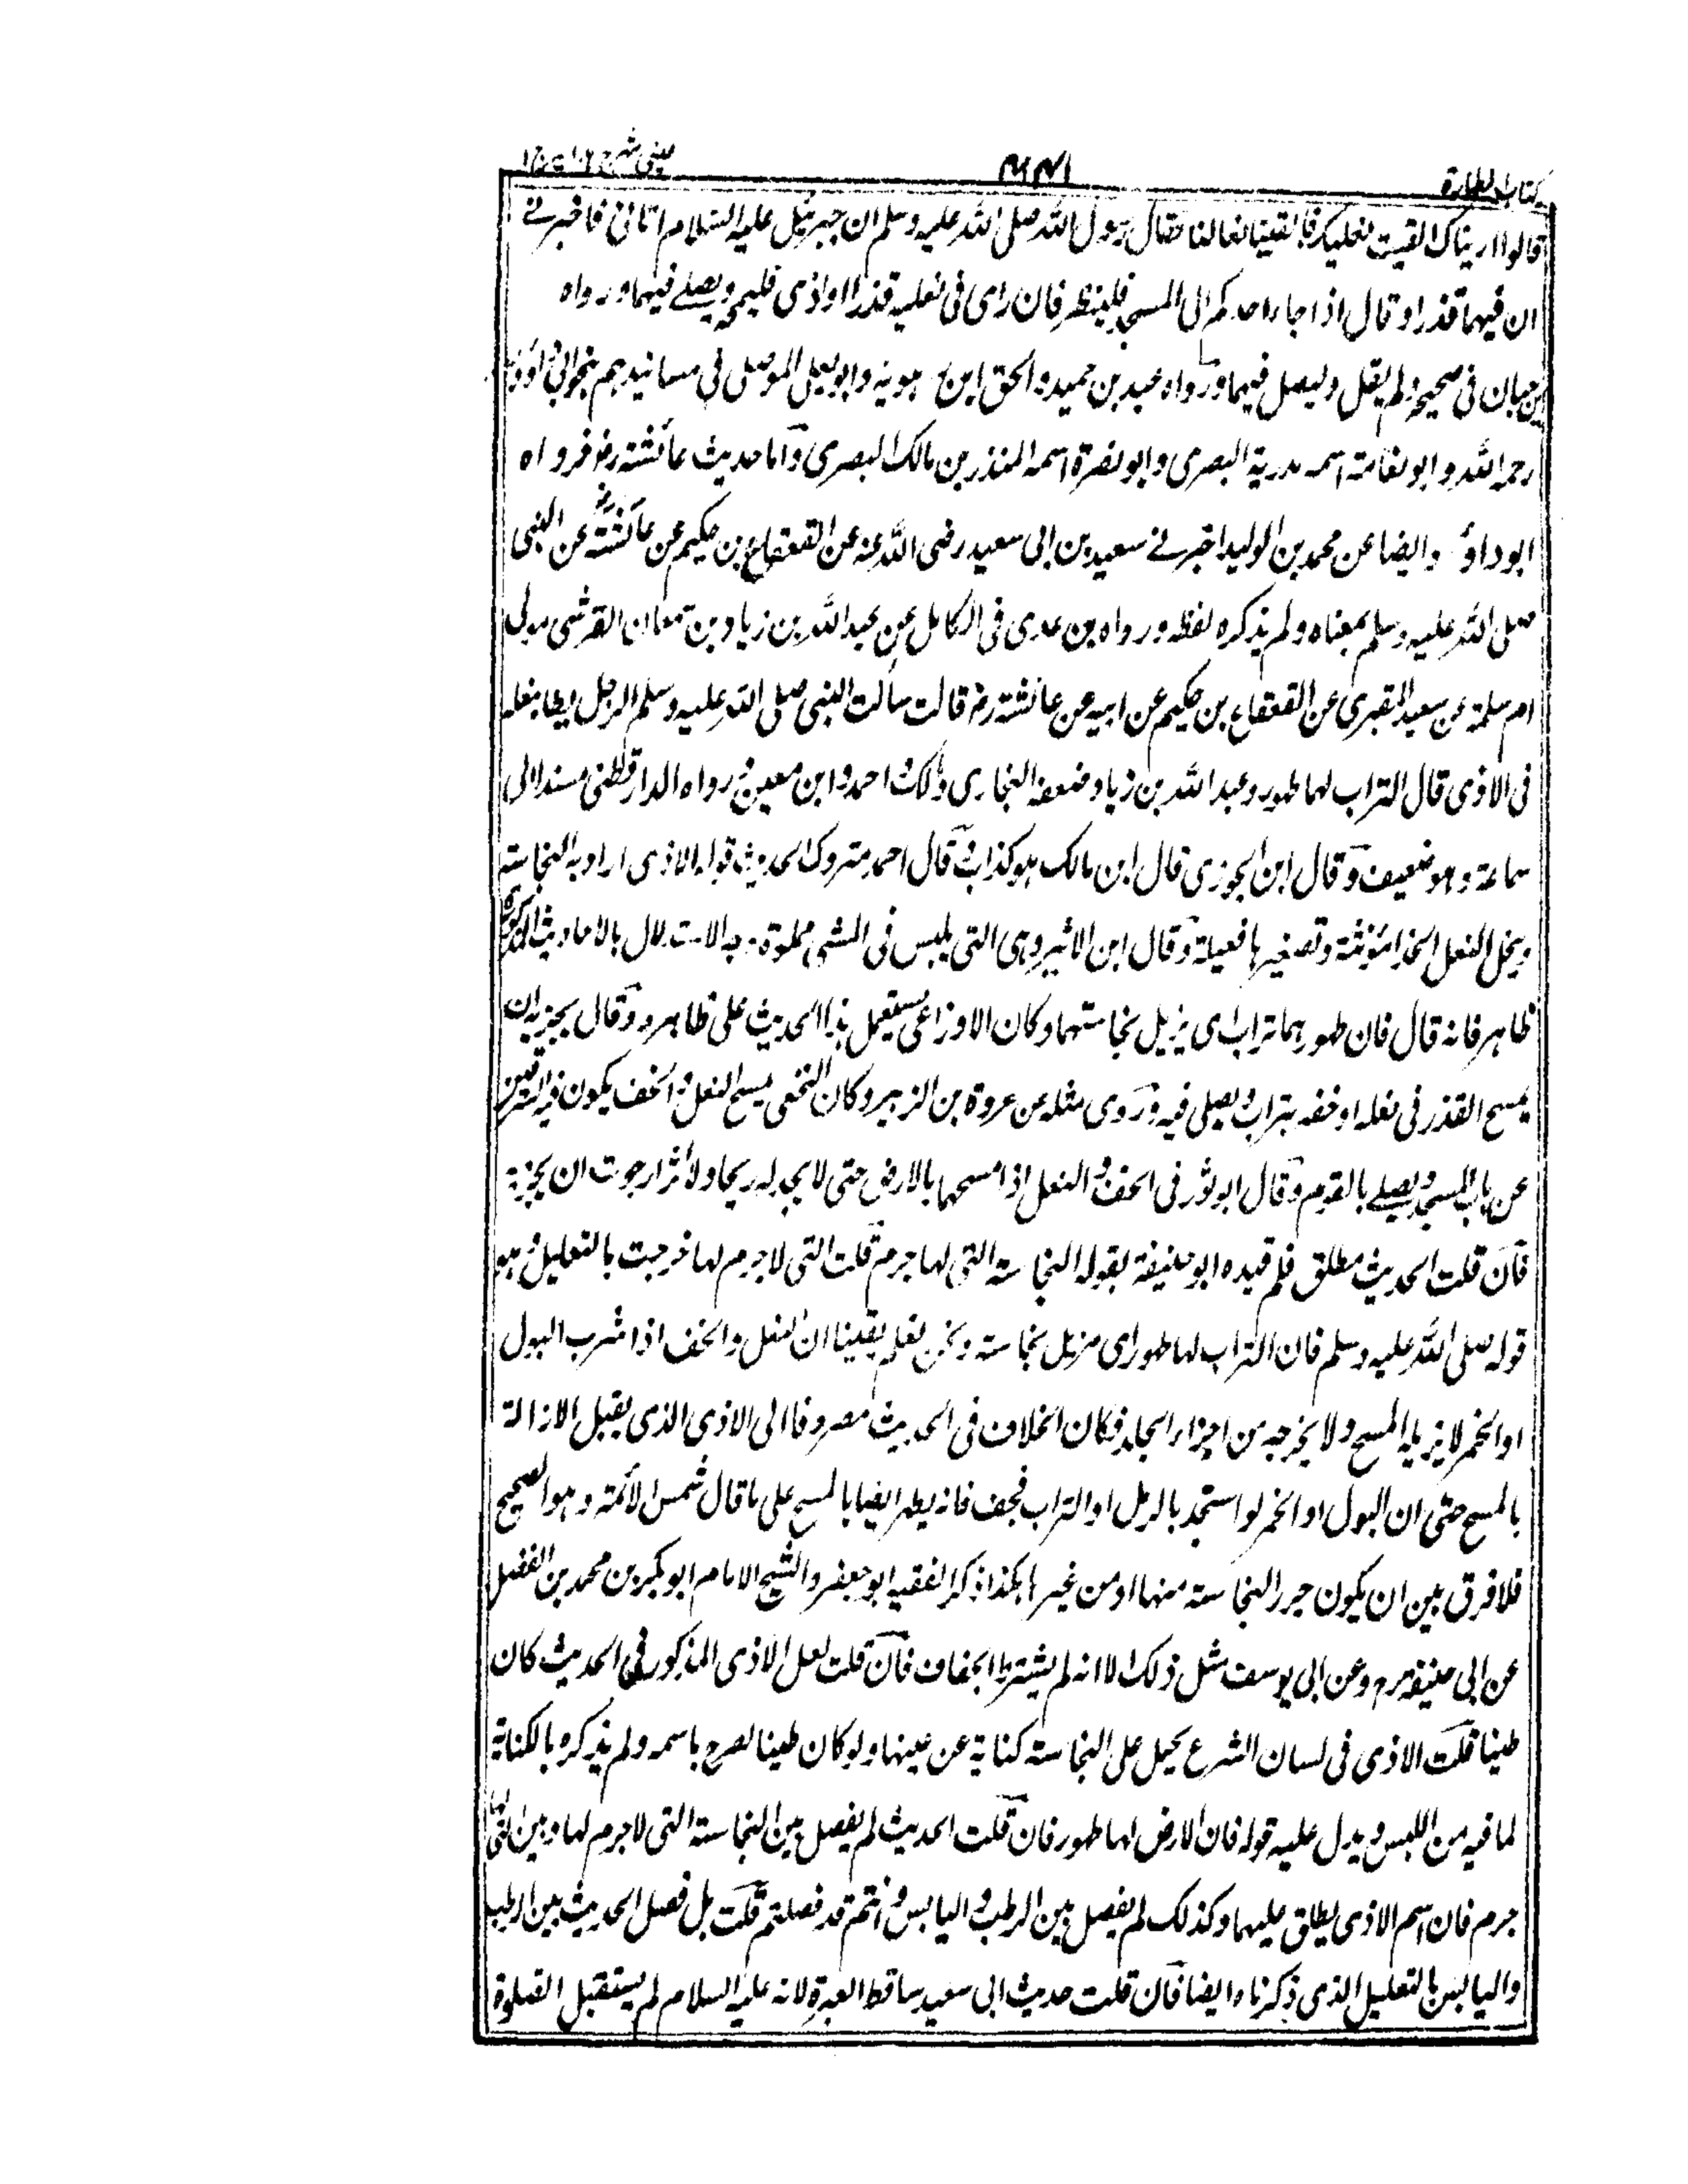 كتاب الطهارة
عينى شرح هداية ج ١
قالوا رايناك القيت نعليك فالقينا نعالنا فقال رسول الله صلى الله عليه وسلم ان جبرئيل عليه السلام اتانى فاخبرنے
ان فيهما قذرا وقال اذا جاء احدكم الى المسجد فلينظر فان راى فى نعليه قذرا او اذى فليمحه ويصلے فيهما ورواه
ابن حبان فى صحيحه ولم يقل وليصل فيهما ورواه عبد بن حميد واسحق ابن راهويه وابويعلى الموصلى فى مسانيدهم بنحو ابى داؤد
رحمه الله وابو نعامة اسمه عبد ربه البصرى وابو نضرة اسمه المنذر بن مالك البصرى وآما حديث عائشة رض فرواه
ابو داؤد وايضا عن محمد بن الوليد اخبرنے سعيد بن ابى سعيد رضى الله عنه عن القعقاع بن حكيم عن عائشة رض عن النبى
صلى الله عليه وسلم بمعناه ولم يذكره لفظه ورواه بن عدى فى الكامل عن عبد الله بن زياد بن سمعان القرشى مولى
ام سلمة عن سعيد المقبرى عن القعقاع بن حكيم عن ابيه عن عائشة رض قالت سالت النبى صلى الله عليه وسلم الرجل يطا بنعله
فى الاذى قال التراب لهما طهور وعبد الله بن زياد ضعفه البخارى ومالك واحمد وابن معين ورواه الدارقطنى مسندا الى
سماعة وهو ضعيف وقال ابن الجوزى قال ابن مالك هو كذاب وقال احمد متروك الحديث قوله الاذى اراد به النجاسة
وبخل النعل الحذا مؤنثة وتصغيرها نعيلة وقال ابن الاثير وهى التى يلبس فى المشى مملوة وجه الاستدلال بالاحاديث المذكورة
ظاهر فانه قال فان طهورهما تراب اى يزيل نجاستهما وكان الاوزاعى يستعمل هذا الحديث على ظاهره وقال يجزيه ان
يمسح القذر فى نعله او خفه بتراب ويصلى فيه وروى مثله عن عروة بن الزبير وكان النخعى يمسح النعل والخف يكون فيه السرقين
عن باب المسجد ويصلے بالقوم وقال ابو ثور فى الخف والنعل اذا مسحهما بالارض حتى لا يجد له ريحا ولا اثرا رجوت ان يجزيه
فآن قلت الحديث مطلق فلم قيده ابو حنيفة بقوله النجاسة التى لها جرم قلت التى لا جرم لها خرجت بالتعليل وهو
قوله صلى الله عليه وسلم فان التراب لها طهور اى مزيل نجاسة ونحن نعلم يقينا ان النعل والخف اذا شرب البول
او الخمر لا يزيله المسح ولا يخرجه من اجزاء الجلد فكان الخلاف فى الحديث مصروفا الى الاذى الذى يقبل الازالة
بالمسح حتى ان البول او الخمر لو استجمد بالرمل او التراب فجف فانه يطهر ايضا بالمسح على ما قال شمس الائمة وهو الصحيح
فلا فرق بين ان يكون جرم النجاسة منها او من غيرها هكذا ذكر الفقيه ابو جعفر والشيخ الامام ابو بكر بن محمد بن الفضل
عن ابى حنيفة رح وعن ابى يوسف مثل ذلك الا انه لم يشترط الجفاف فآن قلت لعل الاذى المذكور فى الحديث كان
طينا قلت الاذى فى لسان الشرع يحمل على النجاسة كناية عن عينها ولو كان طينا لصرح باسمه ولم يذكره بالكناية
لما فيه من اللبس ويدل عليه قوله فان الارض لها طهور فان قلت الحديث لم يفصل بين النجاسة التى لا جرم لها وبين التى لها
جرم فان اسم الاذى يطلق عليهما وكذلك لم يفصل بين الرطب واليابس وانتم قد فصلتم قلت بل فصل الحديث بين الرطب
واليابس بالتعليل الذى ذكرناه ايضا فآن قلت حديث ابى سعيد ساقط العبرة لانه عليه السلام لم يستقبل الصلوة